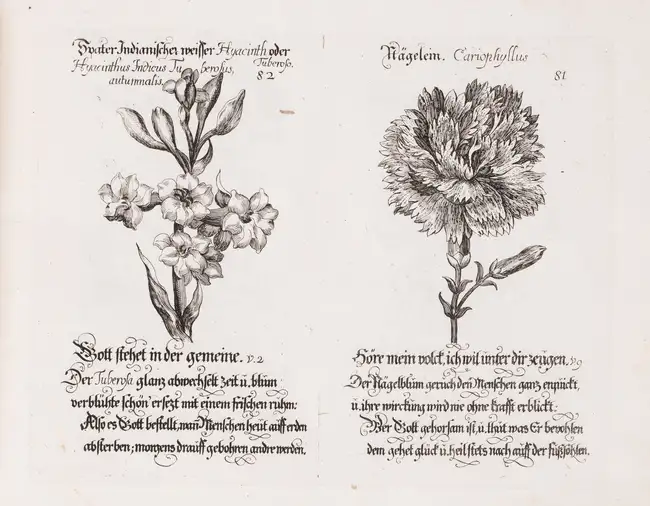 Später Indianischer weisser Hyacinth oder
Hyacinthus Indicus Tuberosus, Tuberosa.
autumnalis.
82
Gott stehet in der gemeine. v. 2
Der Tuberosa glanz abwechselt zeit u. blum
verblühte schön ersezt mit einem frischen ruhm:
Also es Gott bestellt, wan Menschen heut auff erden
absterben; morgens drauff gebohren andre werden.
Nägelein. Cariophyllus
81
Höre mein volck, ich wil unter dir zeugen. v.9
Der Nägelblum geruch den Menschen ganz enzückt,
u. ihre wirckung wird nie ohne krafft erblickt:
Wer Gott gehorsam ist, u. thut was Er bevohlen
dem gehet glück u. heil stets nach auff der fußsohlen.